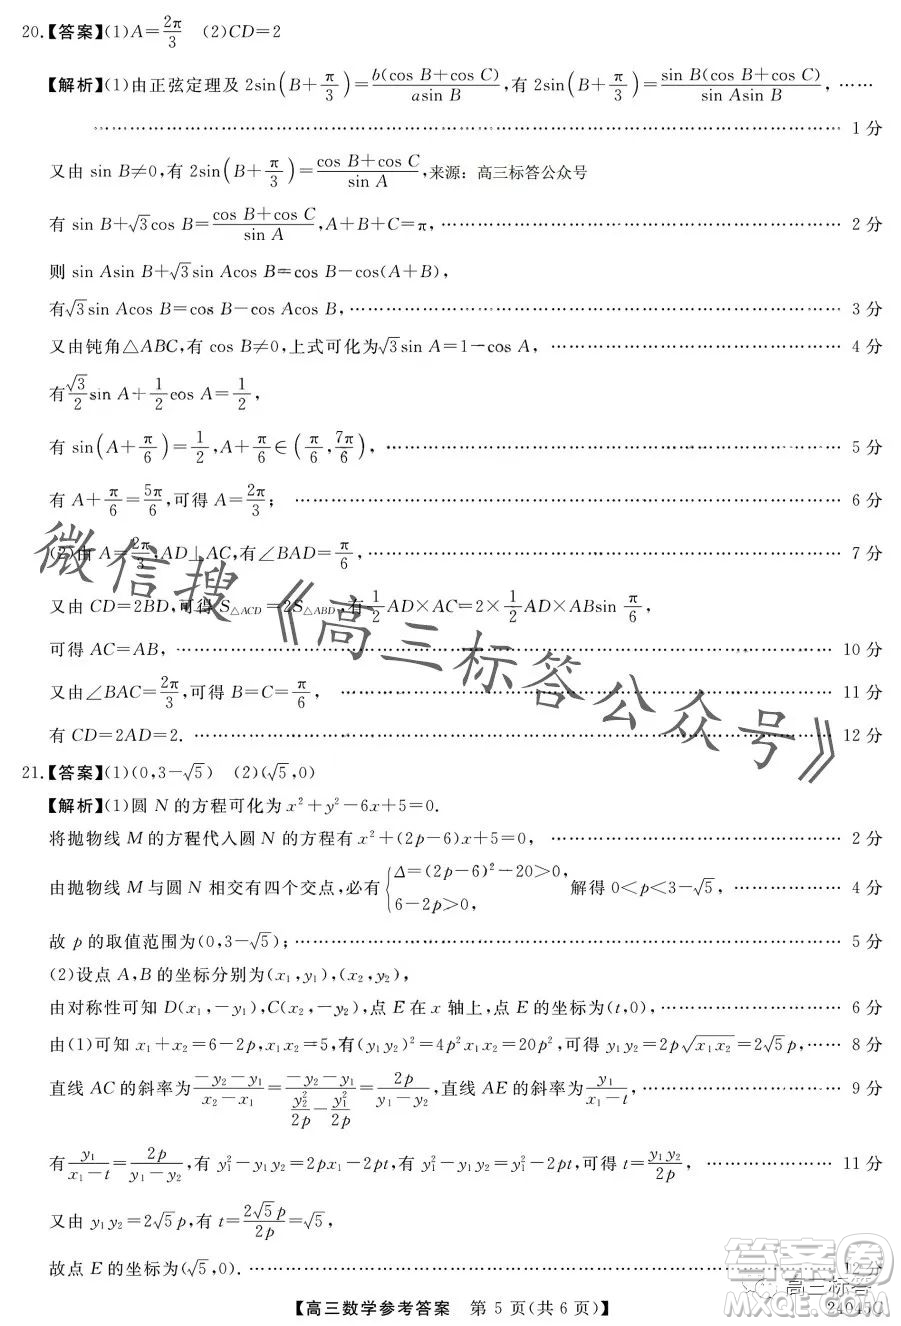 20.【答案】(1)A=2π/3 (2)CD=2
【解析】(1)由正弦定理及 2sin(B+π/3)=b(cos B+cos C)/asin B,有 2sin(B+π/3)=sin B(cos B+cos C)/sin Asin B, ……
…………………………………………………………………… 1 分
又由 sin B≠0,有 2sin(B+π/3)=cos B+cos C/sin A,来源：高三标答公众号
有 sin B+√3cos B=cos B+cos C/sin A,A+B+C=π, …………………………………… 2 分
则 sin Asin B+√3sin Acos B=cos B−cos(A+B),
有√3sin Acos B=cos B−cos Acos B, …………………………………… 3 分
又由钝角△ABC,有 cos B≠0,上式可化为√3sin A=1−cos A, ………………………… 4 分
有√3/2sin A+1/2cos A=1/2,
有 sin(A+π/6)=1/2,A+π/6∈(π/6,7π/6), …………………………………… 5 分
有 A+π/6=5π/6,可得 A=2π/3; …………………………………… 6 分
(2)由 A=2π/3,AD⊥AC,有∠BAD=π/6, …………………………………… 7 分
又由 CD=2BD,可得 S△ACD=2S△ABD,有1/2AD×AC=2×1/2AD×ABsin π/6,
可得 AC=AB, …………………………………… 10 分
又由∠BAC=2π/3,可得 B=C=π/6, …………………………………… 11 分
有 CD=2AD=2. …………………………………… 12 分
微信搜《高三标答公众号》
21.【答案】(1)(0,3−√5) (2)(√5,0)
【解析】(1)圆 N 的方程可化为 x²+y²−6x+5=0.
将抛物线 M 的方程代入圆 N 的方程有 x²+(2p−6)x+5=0, ………………………… 2 分
由抛物线 M 与圆 N 相交有四个交点,必有{Δ=(2p−6)²−20>0, 6−2p>0, 解得 0<p<3−√5, ………… 4 分
故 p 的取值范围为(0,3−√5); …………………………………… 5 分
(2)设点 A,B 的坐标分别为(x₁,y₁),(x₂,y₂),
由对称性可知 D(x₁,−y₁),C(x₂,−y₂),点 E 在 x 轴上,点 E 的坐标为(t,0), ……………… 6 分
由(1)可知 x₁+x₂=6−2p,x₁x₂=5,有(y₁y₂)²=4p²x₁x₂=20p²,可得 y₁y₂=2p√x₁x₂=2√5p, …… 8 分
直线 AC 的斜率为−y₂−y₁/x₂−x₁=−y₂−y₁/(y₂²/2p−y₁²/2p)=2p/y₁−y₂,直线 AE 的斜率为y₁/x₁−t, ……………… 9 分
有y₁/x₁−t=2p/y₁−y₂,有 y₁²−y₁y₂=2px₁−2pt,有 y₁²−y₁y₂=y₁²−2pt,可得 t=y₁y₂/2p, ………… 11 分
又由 y₁y₂=2√5p,有 t=2√5p/2p=√5,
故点 E 的坐标为(√5,0). …………………………………… 12 分
答案圈
高三标答
【高三数学参考答案 第 5 页(共 6 页)】
24045C